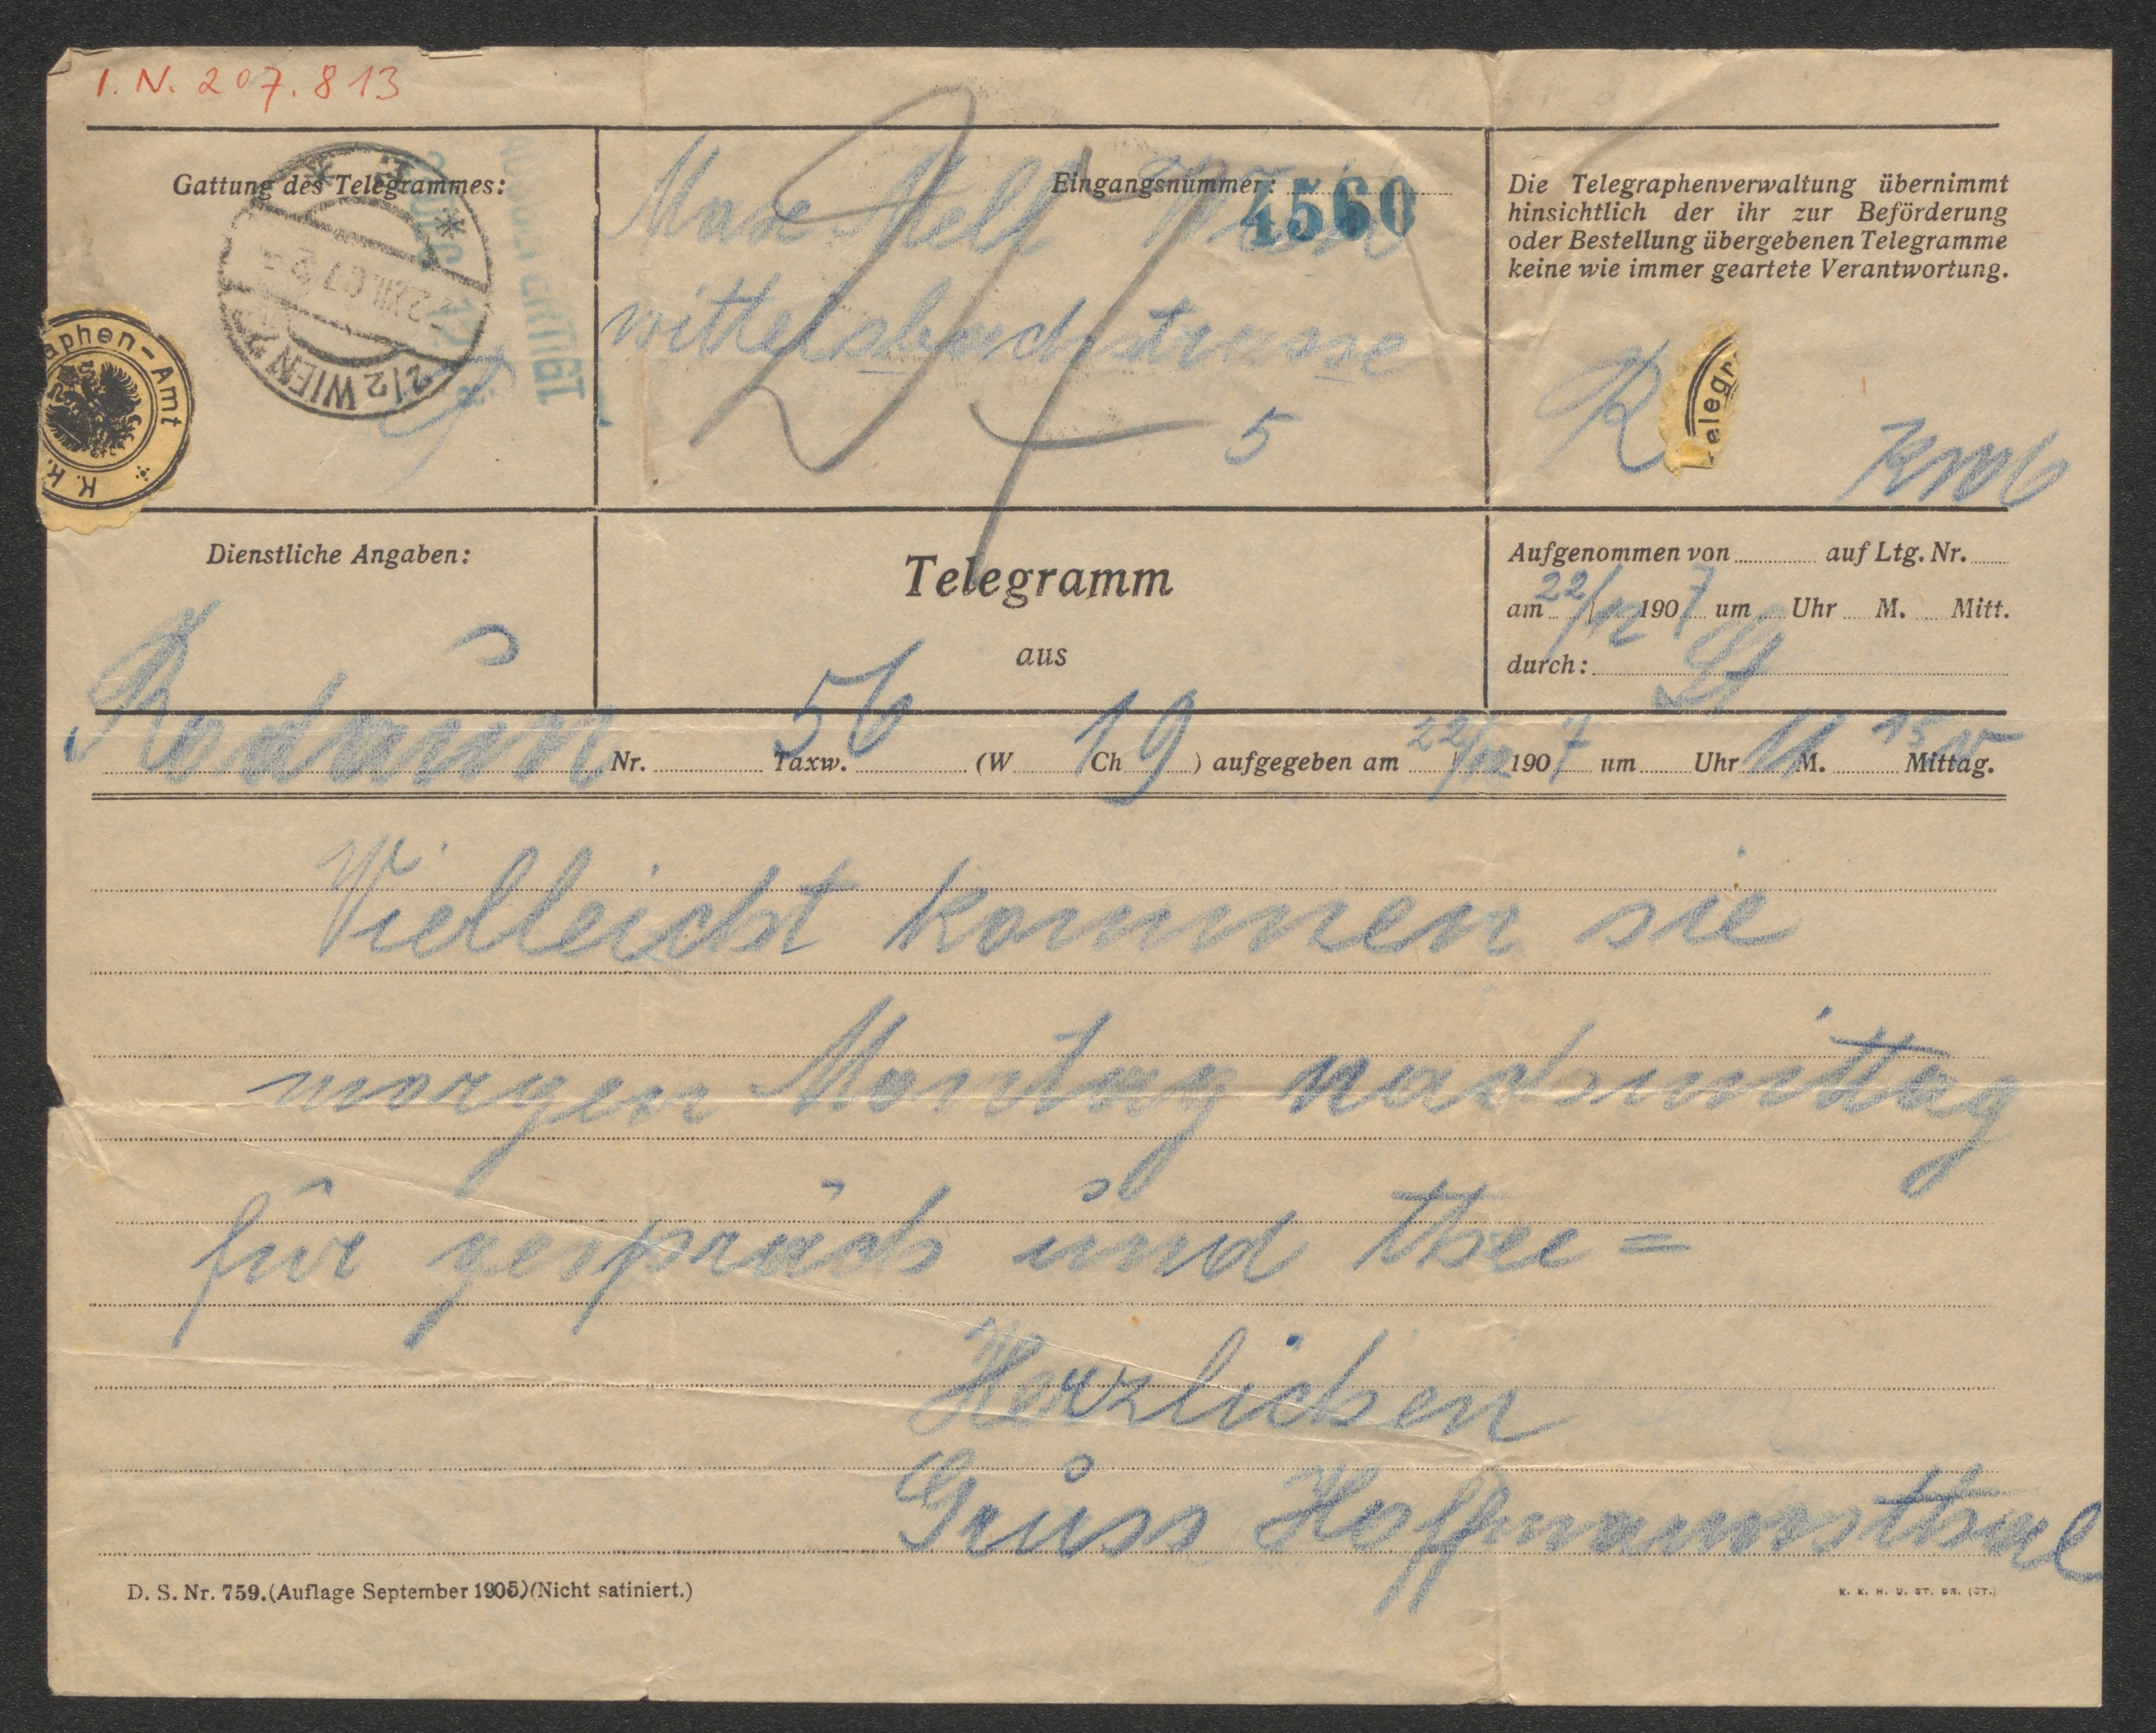 I. N. 207.813
Gattung des Telegrammes:
Eingangsnummer: 4560
Max Mell Wien
wittelsbachstrasse
5
Die Telegraphenverwaltung übernimmt
hinsichtlich der ihr zur Beförderung
oder Bestellung übergebenen Telegramme
keine wie immer geartete Verantwortung.
2/2 WIEN 2
22.XII.07
aphen-Amt
K. K.
Telegr
R
Dienstliche Angaben:
Telegramm
aus
Aufgenommen von auf Ltg. Nr.
am 22/12 1907 um Uhr M. Mitt.
durch:
Rodaun Nr. 56 Taxw. (W 19 Ch ) aufgegeben am 22/12 1907 um Uhr 11 M. 15 Mittag.
Vielleicht kommen sie
morgen Montag nachmittag
für gespräch und thee =
Herzlichen
Gruss Hoffmannsthal
D. S. Nr. 759. (Auflage September 1905) (Nicht satiniert.)
K. K. H. U. ST. DR. (ST.)